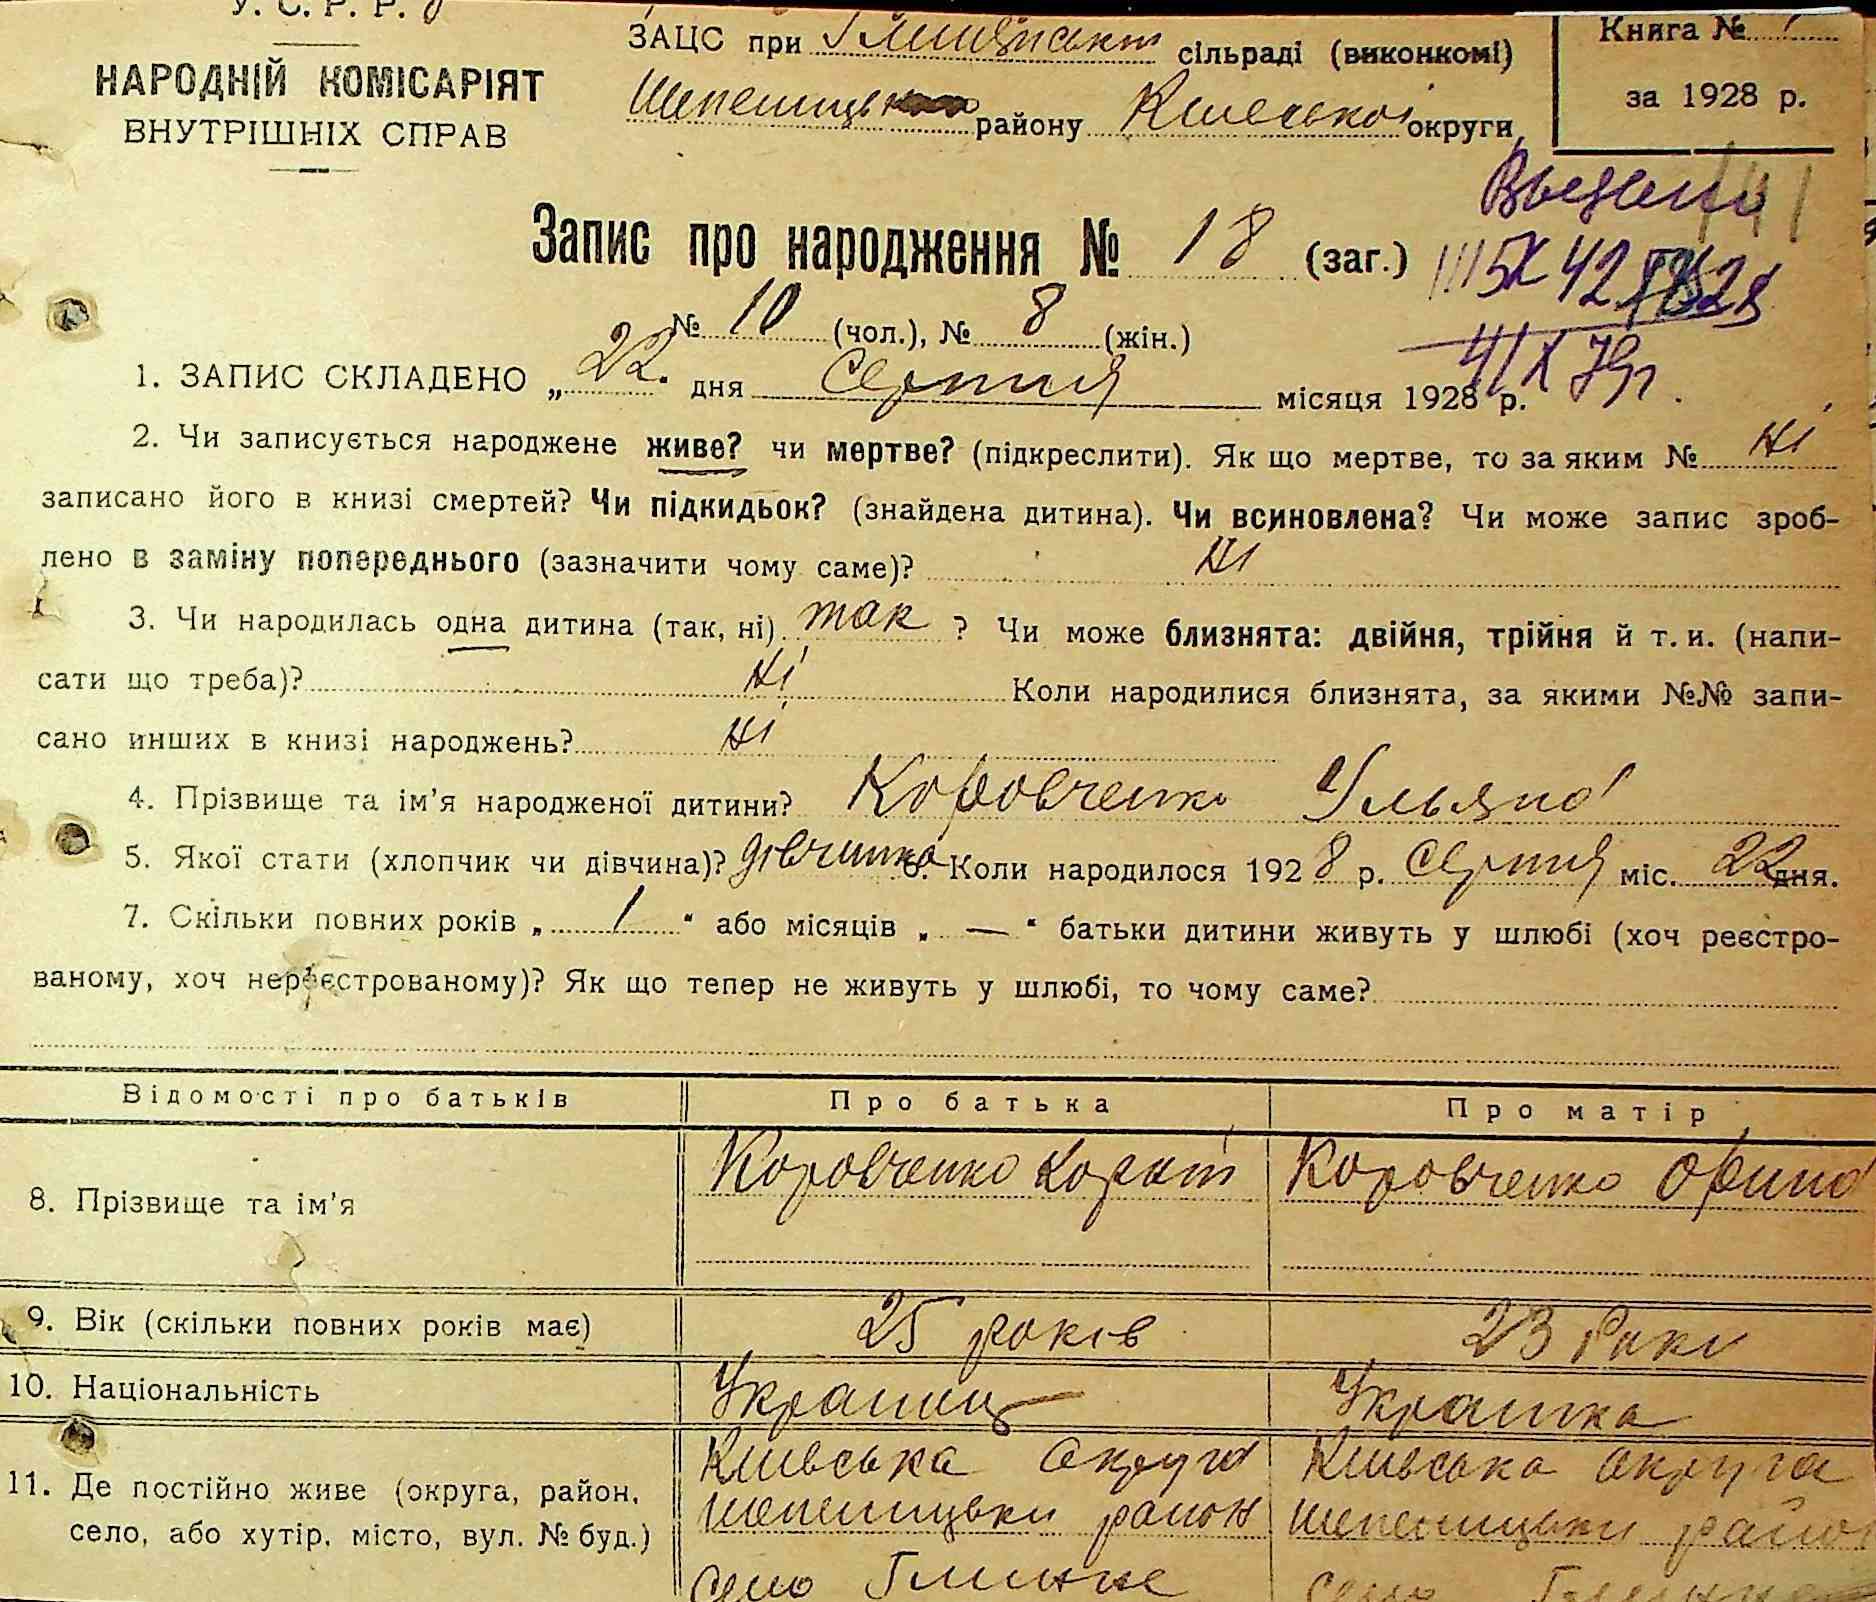 У. С. Р. Р.
НАРОДНІЙ КОМІСАРІЯТ
ВНУТРІШНІХ СПРАВ
ЗАЦС при сільраді (виконкомі)
району округи
Книга №
за 1928 р.
Запис про народження № 18 (заг.)
№ 10 (чол.), № 8 (жін.)
1. ЗАПИС СКЛАДЕНО „ 22 " дня Серпня місяця 1928 р.
2. Чи записується народжене живе? чи мертве? (підкреслити). Як що мертве, то за яким № Ні
записано його в книзі смертей? Чи підкидьок? (знайдена дитина). Чи всиновлена? Чи може запис зроб-
лено в заміну попереднього (зазначити чому саме)? Ні
3. Чи народилась одна дитина (так, ні) так ? Чи може близнята: двійня, трійня й т. и. (напи-
сати що треба)? Ні Коли народилися близнята, за якими №№ запи-
сано инших в книзі народжень? Ні
4. Прізвище та ім'я народженої дитини? Коровченко Ульяна
5. Якої стати (хлопчик чи дівчина)? дівчинка 6. Коли народилося 1928 р. Серпня міс. 22 дня.
7. Скільки повних років „ 1 " або місяців „ — " батьки дитини живуть у шлюбі (хоч реєстро-
ваному, хоч нереєстрованому)? Як що тепер не живуть у шлюбі, то чому саме?
Відомості про батьків Про батька Про матір
8. Прізвище та ім'я Коровченко Коровченко Орина
9. Вік (скільки повних років має) 25 років 23 Роки
10. Національність Украинц Украинка
11. Де постійно живе (округа, район, село, або хутір, місто, вул. № буд.)
Киівська округа Киівська округа
район район
село Глинне село